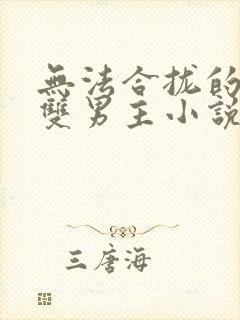 無法合拢的
雙男主小說
三唐海